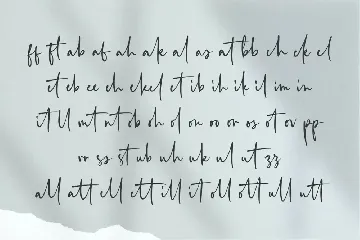 ff ft ab af ah ak al as at bb ch ck cl
et eb ee eh ekel et ib ih ik il im in
it ll mt nt ob oh ol on oo or os ot ov pp
rr ss st ub uh uk ul ut zz
all att ell ett ill it oll ott ull utt